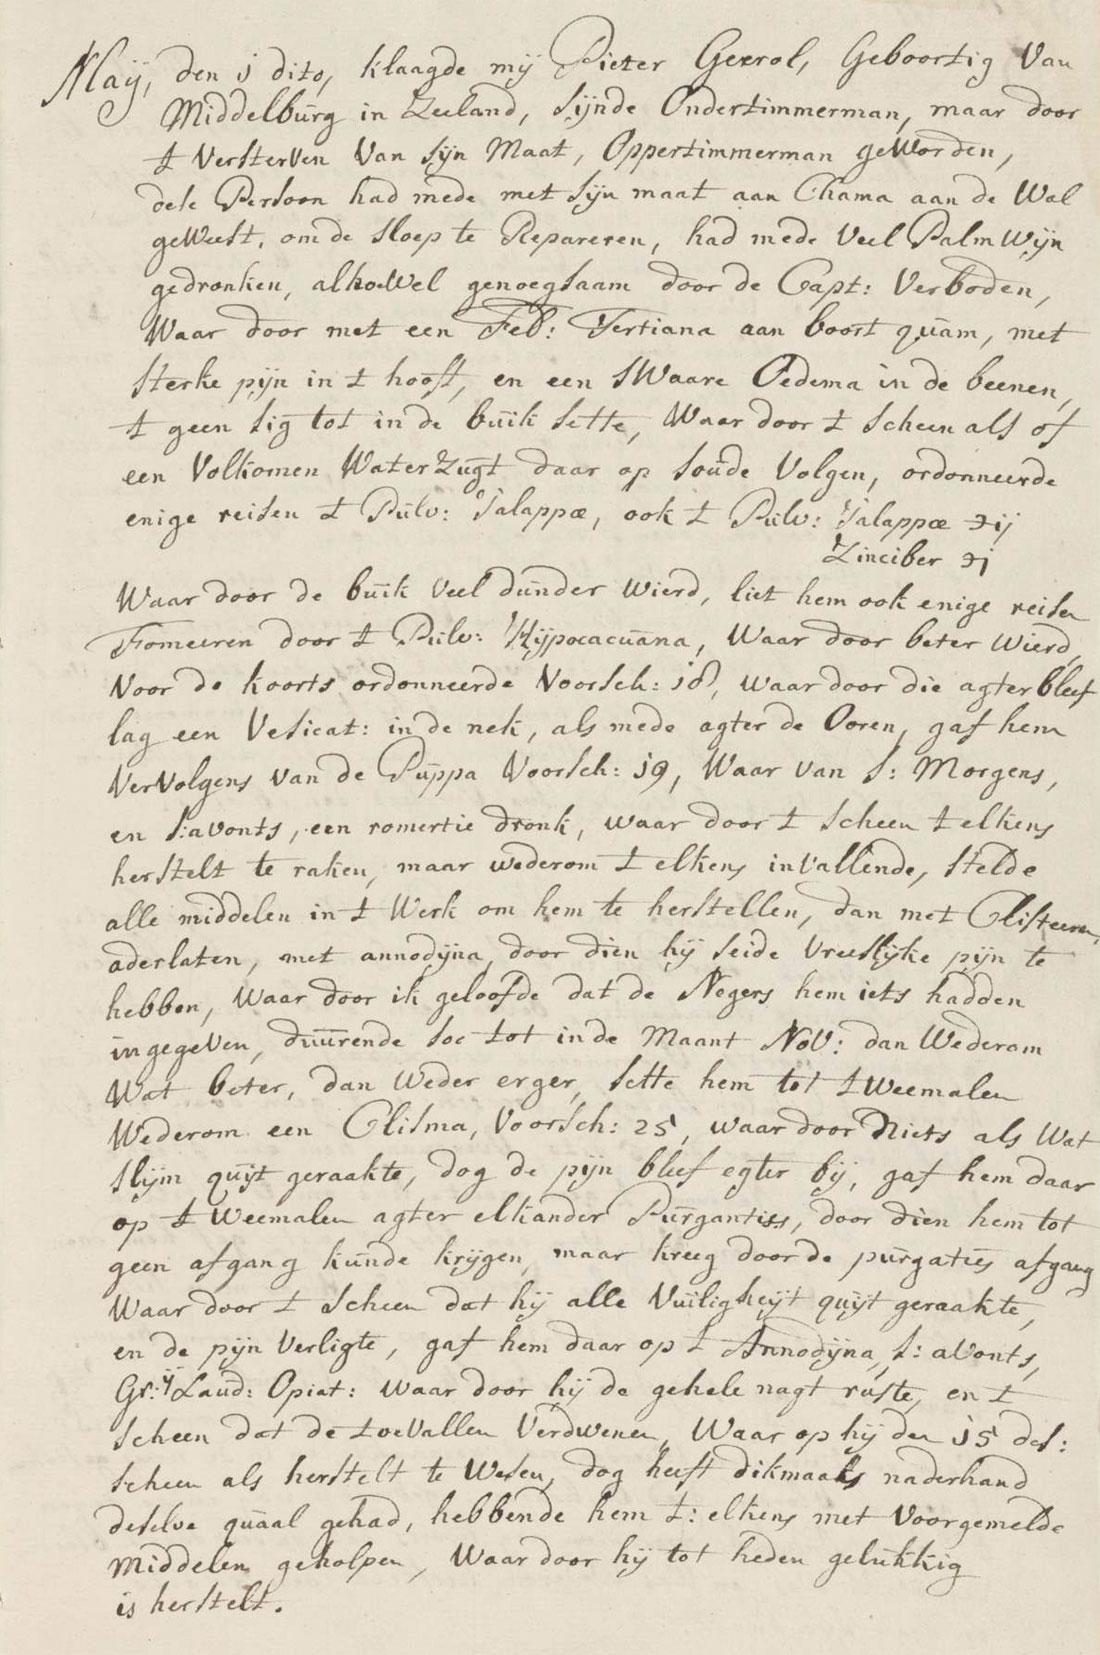 Maÿ, den 1 dito, klaagde mÿ Pieter Gerrol, Geboortig Van
Middelburg in Zeeland, sÿnde Ondertimmerman, maar door
't Versterven Van sÿn Maat, Oppertimmerman geworden,
dese Persoon had mede met sÿn maat aan Chama aan de Wal
geweest, om de sloep te Repareren, had mede Veel Palm Wÿn
gedronken, alhoeWel genoegsaam door de Capt: Verboden,
Waar door met een Feb: Tertiana aan boort quam, met
sterke pÿn in 't hooft, en een sWaare Oedema in de beenen,
't geen sig tot in de buik sette, Waar door 't scheen als of
een Volkomen WaterZugt daar op soude Volgen, ordonneerde
enige reisen 't Pulv: Jalappæ, ook 't Pulv: Jalappæ ℈ij
Zinciber ℈j
Waar door de buik Veel dunder Wierd, liet hem ook enige reisen
Fomeeren door 't Pulv: Hÿpocacuana, Waar door beter Wierd,
Voor de koorts ordonneerde Voorsch: 18, waar door die agter bleef
lag een Vesicat: in de nek, als mede agter de Ooren, gaf hem
VerVolgens van de Puppa Voorsch: 19, Waar van s: Morgens,
en s:avonts, een romertie dronk, waar door 't scheen 't elkens
herstelt te raken, maar wederom 't elkens inVallende, stelde
alle middelen in 't Werk om hem te herstellen, dan met Clisteeren,
aderlaten, met annodÿna, door dien hÿ seide Vreeslÿke pÿn te
hebben, Waar door ik geloofde dat de Negers hem iets hadden
ingegeven, duurende soe tot in de Maant Nov: dan Wederom
Wat beter, dan Weder erger, sette hem tot tWeemalen
Wederom een Clisma, Voorsch: 25, waar door Niets als Wat
slÿm quÿt geraakte, dog de pÿn bleef egter bÿ, gaf hem daar
op tWeemalen agter elkander Purgantiss, door dien hem tot
geen afgang kunde krÿgen, maar kreeg door de purgaties afgang
Waar door 't scheen dat hÿ alle Vuiligheÿt quÿt geraakte,
en de pÿn Verligte, gaf hem daar op 't Annodÿna, s: avonts,
Gr: ÿ Laud: Opiat: waar door hÿ de gehele nagt ruste, en 't
scheen dat de toeVallen Verdwenen, Waar op hÿ den 15 des:
scheen als herstelt te Wesen, dog heeft dikmaals naderhand
deselve quaal gehad, hebbende hem t: elkens met Voorgemelde
Middelen geholpen, Waar door hÿ tot heden gelukkig
is herstelt.